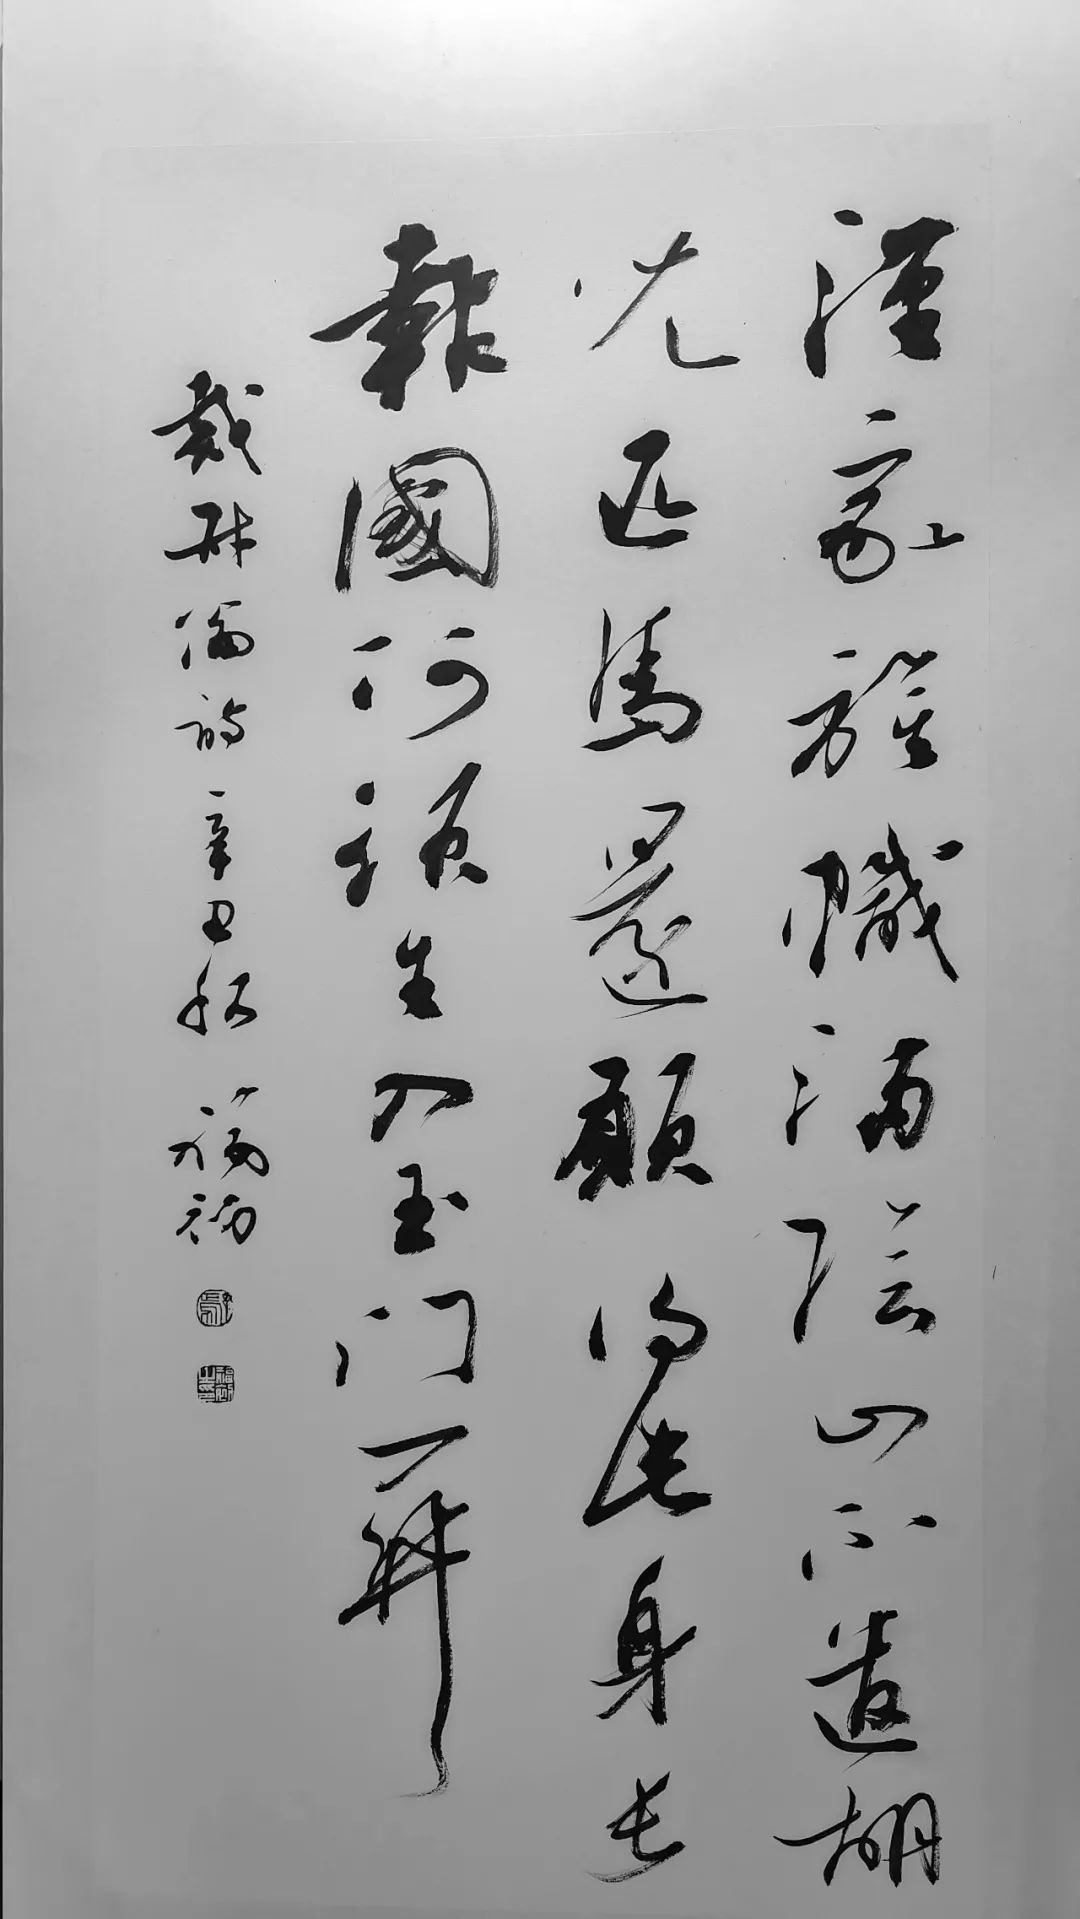 漢家旌幟滿陰山不遣胡
兒匹馬還願得此身長
報國何須生入玉門關
戴叔倫詩 辛丑秋